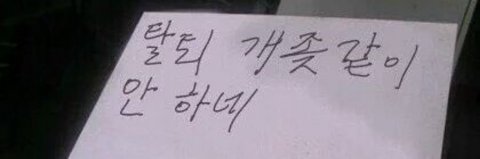 탈퇴 개좆같이
안 하네